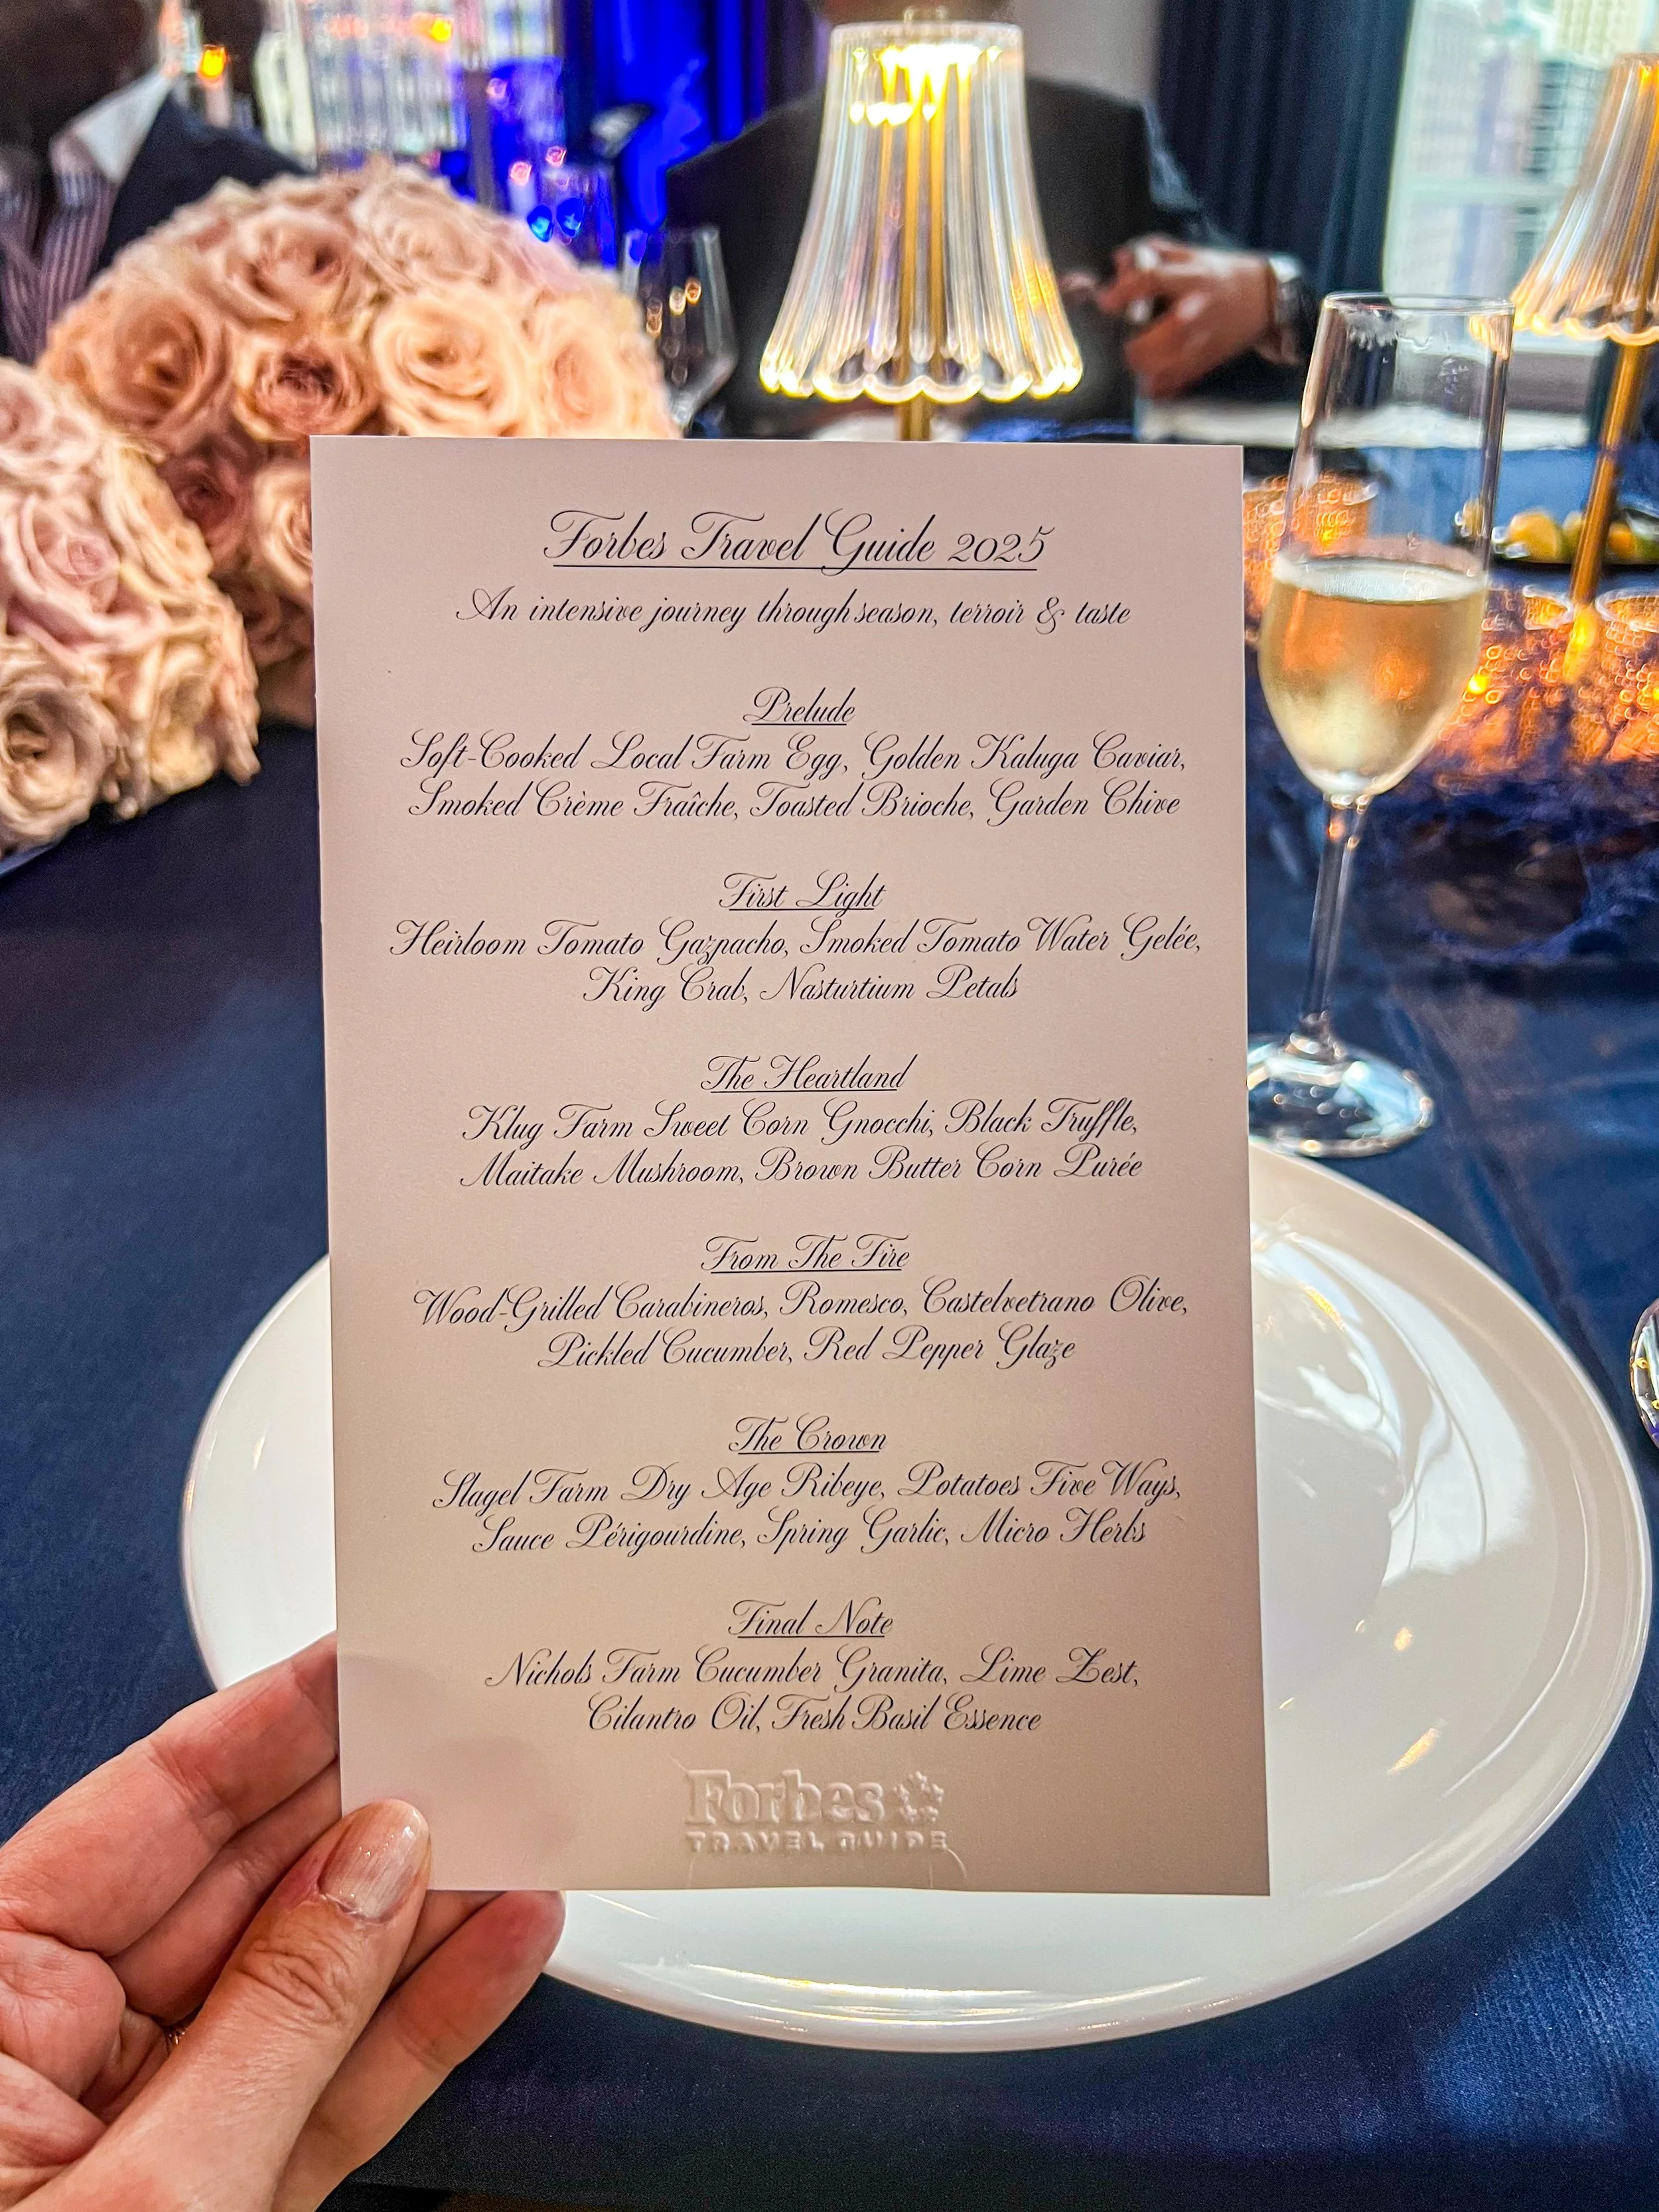 Forbes Travel Guide 2025
An intensive journey through season, terroir & taste
Prelude
Soft-Cooked Local Farm Egg, Golden Kaluga Caviar,
Smoked Crème Fraîche, Toasted Brioche, Garden Chive
First Light
Heirloom Tomato Gazpacho, Smoked Tomato Water Gelée,
King Crab, Nasturtium Petals
The Heartland
Klug Farm Sweet Corn Gnocchi, Black Truffle,
Maitake Mushroom, Brown Butter Corn Purée
From The Fire
Wood-Grilled Carabineros, Romesco, Castelvetrano Olive,
Pickled Cucumber, Red Pepper Glaze
The Crown
Slagel Farm Dry Age Ribeye, Potatoes Five Ways,
Sauce Périgourdine, Spring Garlic, Micro Herbs
Final Note
Nichols Farm Cucumber Granita, Lime Zest,
Cilantro Oil, Fresh Basil Essence
Forbes
TRAVEL GUIDE